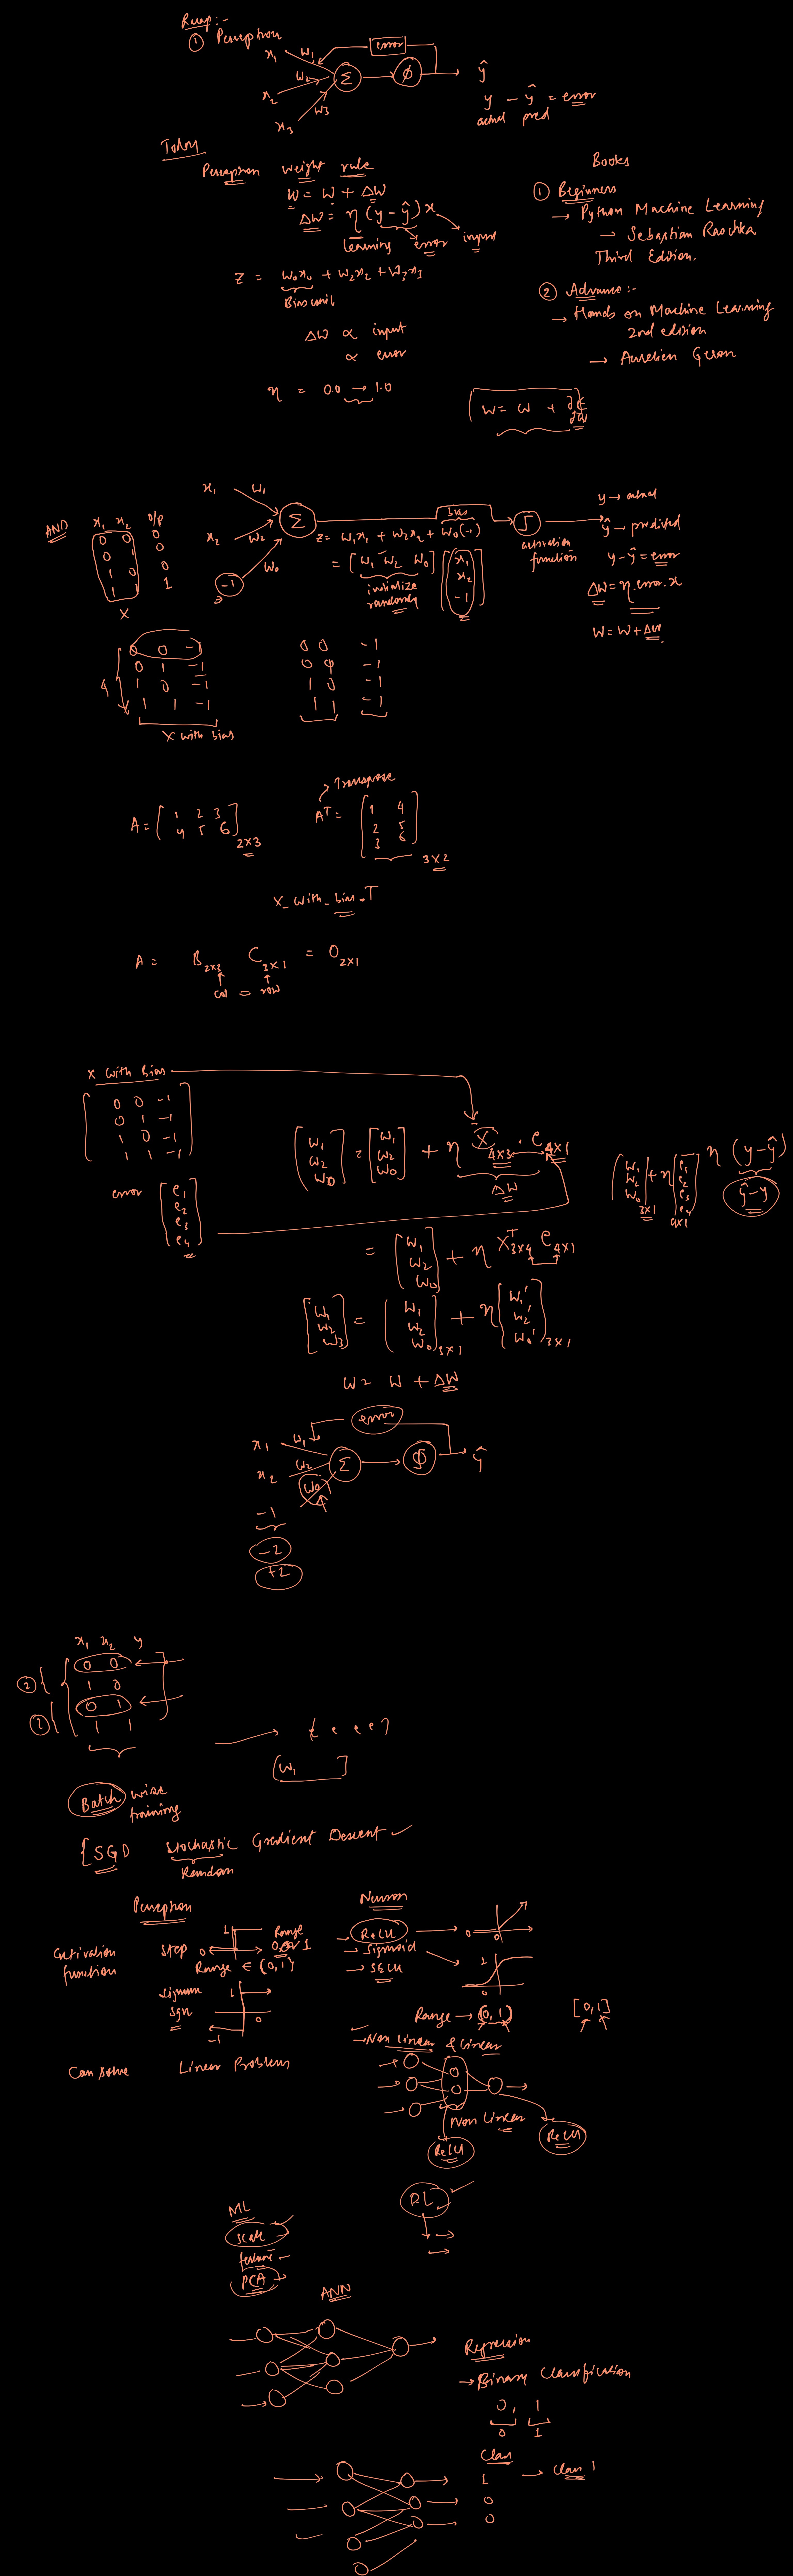 Recap:-
① Perceptron
x₁ w₁ error
x₂ w₂ Σ φ ŷ
x₃ w₃
y - ŷ = error
actual pred
Today
Perceptron weight rule
W = W + ΔW
ΔW = η (y - ŷ) x
learning error input
Z = w₀x₀ + w₂x₂ + w₃x₃
Bias unit
ΔW ∝ input
∝ error
η = 0.0 → 1.0
Books
① Beginners
→ Python Machine Learning
→ Sebastian Raschka
Third Edition.
② Advance:-
→ Hands on Machine Learning
2nd edition
→ Aurelien Geron
W = W + ∂E/∂W
AND x₁ x₂ O/P
0 0 0
0 1 0
1 0 0
1 1 1
X
x₁ w₁
x₂ w₂ Σ
-1 w₀
bias
Z = w₁x₁ + w₂x₂ + w₀(-1)
= [w₁ w₂ w₀] [x₁ x₂ -1]
initialize
randomly
activation
function
y → actual
ŷ → predicted
y - ŷ = error
ΔW = η.error.x
W = W + ΔW
0 0 -1
0 1 -1
4 1 0 -1
1 1 -1
X with bias
0 0 -1
0 -1
1 0 -1
1 1 -1
A = [1 2 3
4 5 6] 2×3
Transpose
Aᵀ = [1 4
2 5
3 6] 3×2
X_with_bias.T
A = B C 3×1 = O 2×1
col = row
X with bias
0 0 -1
0 1 -1
1 0 -1
1 1 -1
error
e₁
e₂
e₃
e₄
[w₁ w₂ w₀] = [w₁ w₂ w₀] + η X 4×3 . e 4×1
ΔW
[w₁ w₂ w₀] 3×1 + η [e₁ e₂ e₃ e₄] 4×1
η (y - ŷ)
ŷ - y
= [w₁ w₂ w₀] + η Xᵀ 3×4 e 4×1
[w₁ w₂ w₃] = [w₁ w₂ w₀] 3×1 + η [w₁' w₂' w₀'] 3×1
W = W + ΔW
error
x₁ w₁
x₂ w₂ Σ φ ŷ
w₀
-1
-2
+2
x₁ x₂ y
0 0
② 1 0
0 1
② 1 1
[w₁ ]
Batch wise
training
{SGD Stochastic Gradient Descent
Random
Perceptron
Activation
function
Step 0 1
Range
0 or 1
Range ∈ {0,1}
signum
sgn
1 0 -1
Can solve Linear Problem
Neuron
→ ReLU 0 0
→ Sigmoid 1 0
→ SELU
Range → (0, 1) [0,1]
→ Non linear & Linear
Non Linear
ReLU ReLU
ML
scale
feature
PCA
DL
ANN
Regression
→ Binary Classification
0, 1
0 1
Class
1 → Class 1
0
0